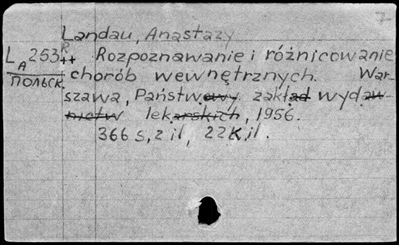 Landau, Anastazy
LA253R
++ Rozpoznawanie i różnicowanie
ПОЛЬСК. chorób wewnętrznych. War-
szawa, Państwowy zakład wydaw-
nictw lekarskich, 1956.
366 s, z il, 22K.il.